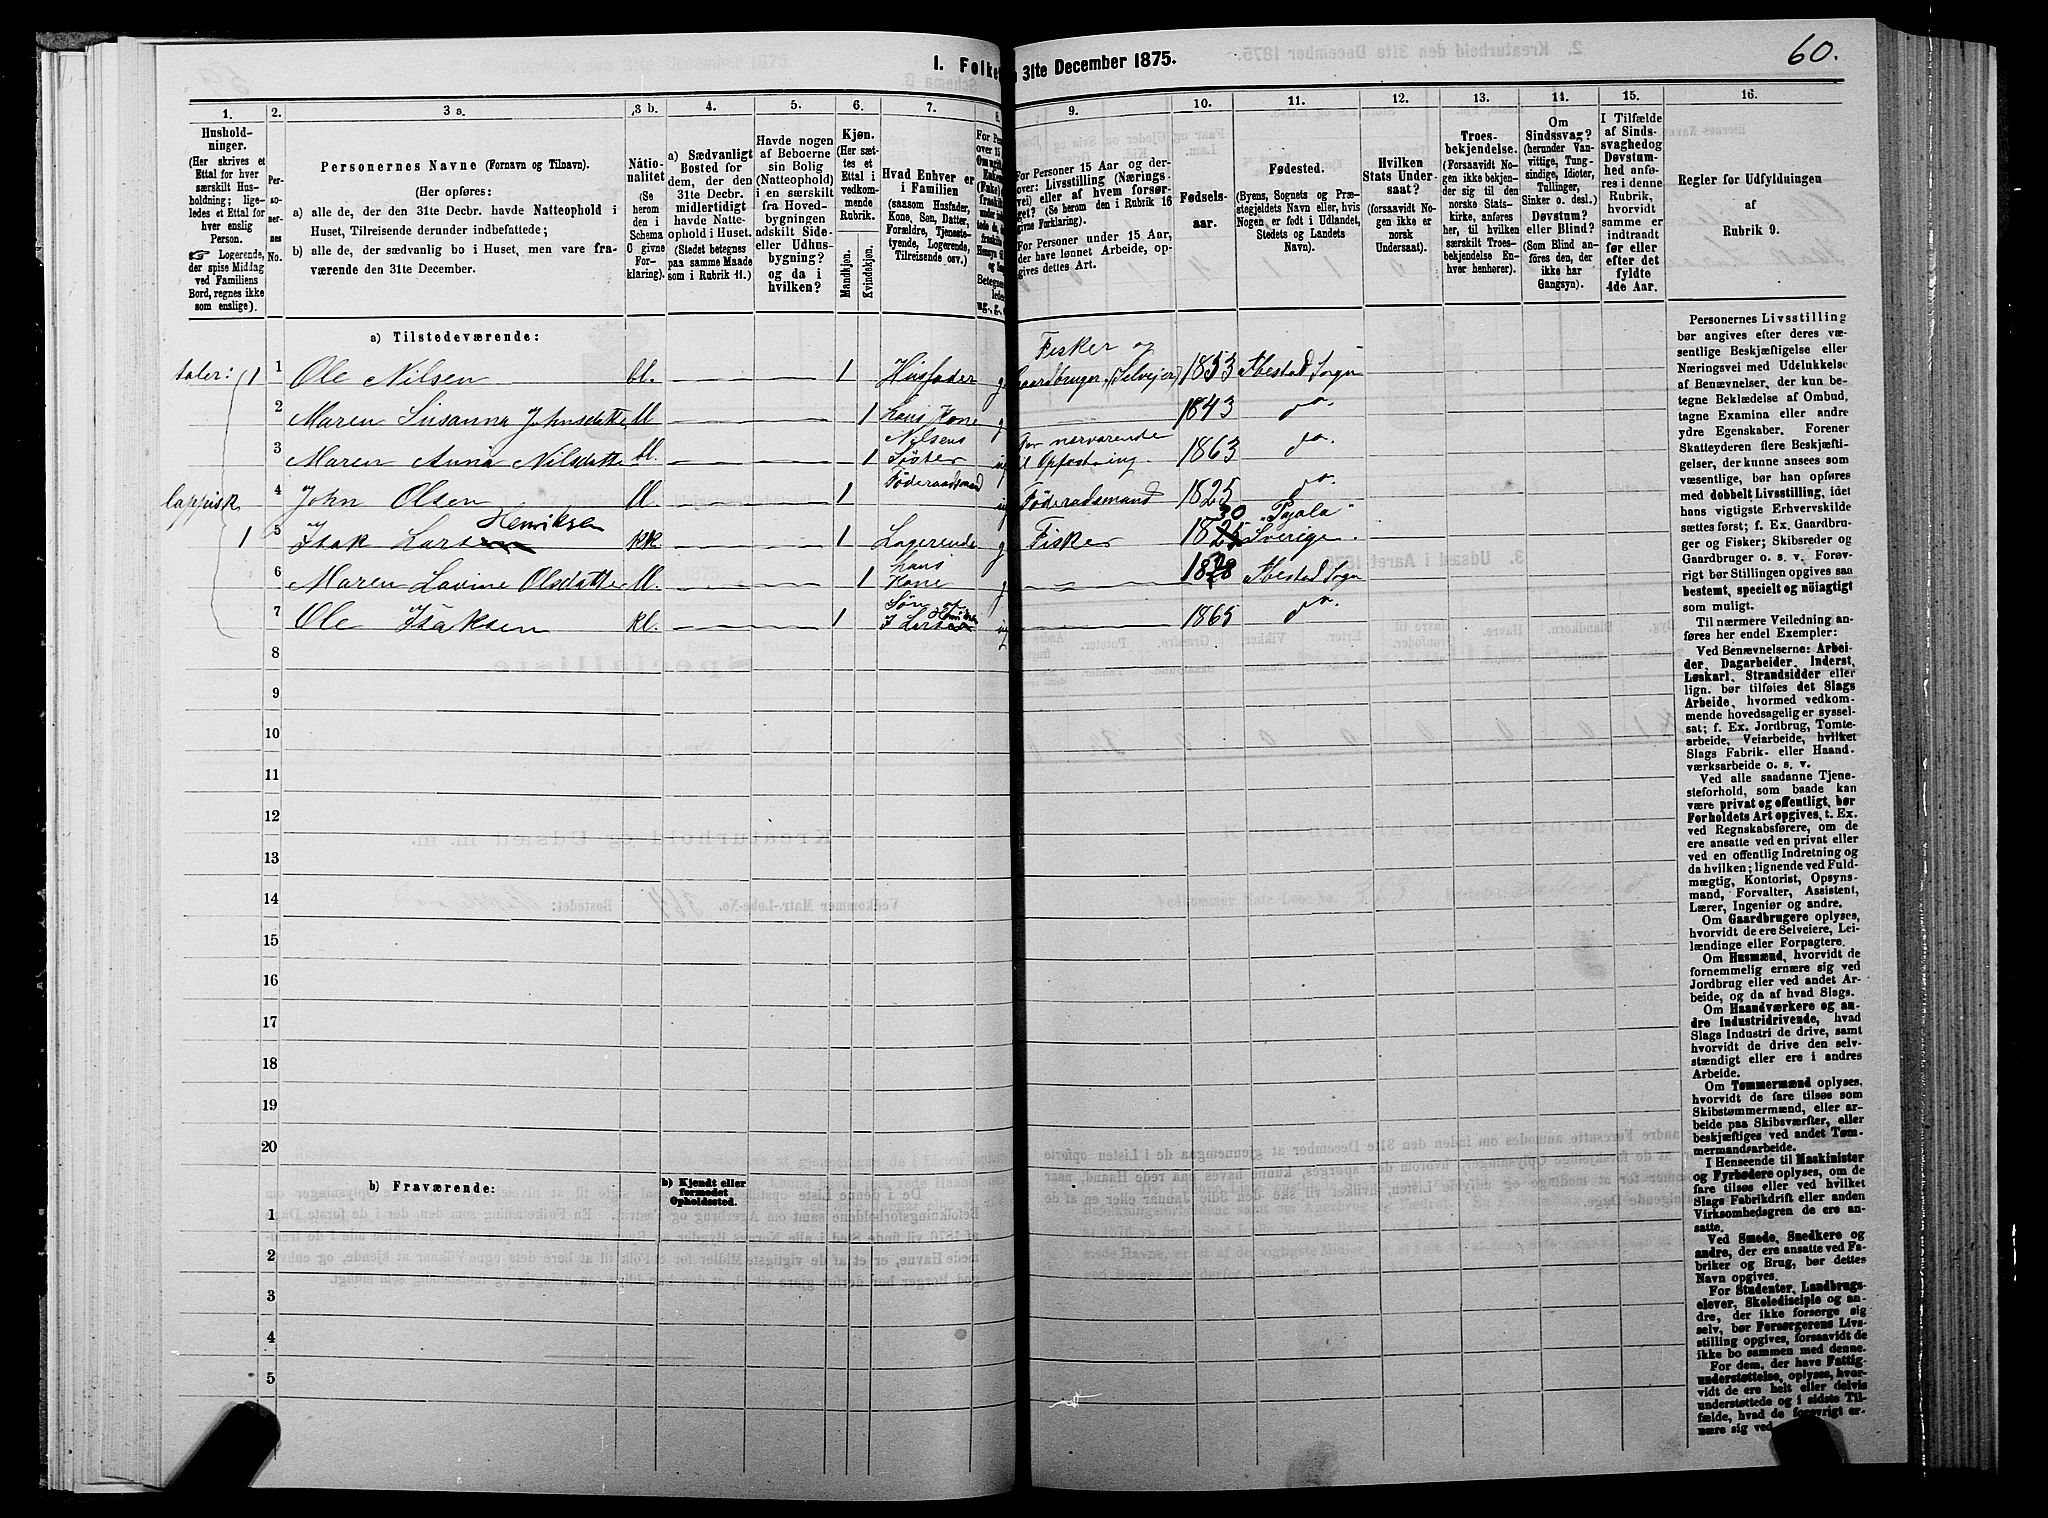 60.
1. Folke
31te December 1875.
1.
2.
3 a.
3 b.
4.
5.
6.
7.
8.
9.
10.
11.
12.
13.
14.
15.
16.
Hushold-
ninger.
(Her skrives et
Ettal for hver
særskilt Hus-
holdning; lige-
ledes et Ettal for
hver enslig
Person.
☞ Logerende,
der spise Middag
ved Familiens
Bord, regnes ikke
som enslige).
Per-
so-
ner-
nes
No.
Personernes Navne (Fornavn og Tilnavn).
(Her opføres:
a) alle de, der den 31te Decbr. havde Natteophold i
Huset, Tilreisende derunder indbefattede;
b) alle de, der sædvanlig bo i Huset, men vare fra-
værende den 31te December.
Natio-
nalitet
(Se
herom
den i
Schema
C givne
For-
klaring).
a) Sædvanligt
Bosted for
dem, der den
31te Decbr.
midlertidigt
havde Natte-
ophold i Huset.
(Stedet betegnes
paa samme Maade
som i Rubrik 11.)
Havde nogen
af Beboerne
sin Bolig
(Natteophold)
i en særskilt
fra Hoved-
bygningen
adskilt Side-
eller Udhus-
bygning?
og da i
hvilken?
Kjøn.
(Her sæt-
tes et
Ettal i
vedkom-
mende
Rubrik.
Mandkjøn.
Kvindekjøn.
Hvad Enhver er
i Familien
(saasom Husfader,
Kone, Søn, Datter,
Forældre, Tjeneste-
tyende, Logerende,
Tilreisende osv.)
For Personer 15 Aar og der-
over: Livsstilling (Nærings-
vei) eller af hvem forsør-
get? (Se herom den i Rubrik 16
givne Forklaring.)
For Personer under 15 Aar,
der have lønnet Arbeide, op-
gives dettes Art.
Fødsels-
aar.
Fødested.
(Byens, Sognets og Præ-
stegjeldets Navn eller, hvis
Nogen er født i Udlandet,
Stedets og Landets
Navn).
Hvilken
Stats Under-
saat?
(forsaavidt No-
gen ikke er
norsk
Undersaat).
Troes-
bekjendelse.
(Forsaavidt No-
gen ikke bekjen-
der sig til den
norske Stats-
kirke, anføres
her, til hvilken
særskilt Troes-
bekjendelse En-
hver henhører).
Om
Sindssvag?
(herunder Van-
vittige, Tung-
sindige, Idioter,
Tullinger,
Sinker o. desl.)
Døvstum?
eller Blind?
(Som Blind an-
føres den, der
ikke har
Gangsyn).
I Tilfælde
af Sinds-
svaghed og
Døvstum-
hed anfø-
res i denne
Rubrik,
hvorvidt
samme er
indtraadt
før eller
efter det
fyldte
4de Aar.
Regler for Udfyldningen
af
Rubrik 9.
a) Tilstedeværende:
taler: 1 1 Ole Nilsen bl. 1 Husfader g Fisker og Gaardbruger (Selvejer) 1853 Ibestad Sogn
2 Maren Susanna Johnsdatte bl 1 hans Kone g 1843 do.
3 Maren Anna Nilsdatte bl. 1 Nilsens Søster ug For nærværende til Opfostring. 1863 do.
lappisk 4 John Olsen bl. 1 Føderaadsmand Føderadsmand 1825 do.
1 5 Isak Larsen Henriksen kk. 1 Logerende g Fisker 1825 30 "Pajala" Sverige.
6 Maren Lavine Olsdatte bl. 1 hans Kone g Ibestad Sogn
7 Ole Isaksen kl. 1 Søn af I Larsen Henriksen ug 1865 do.
8
9
10
11
12
13
14
15
16
17
18
19
20
b) Fraværende:
b) Kjendt eller
formodet
Opholdssted.
1
2
3
4
5
Personernes Livsstilling
bør angives efter deres væ-
sentlige Beskjæftigelse eller
Næringsvei med Udelukkelse
af Benævnelser, der kun be-
tegne Beklædelse af Ombud,
tagne Examina eller andre
ydre Egenskaber. Forener
Skatteyderen flere Beskjæfti-
gelser, der kunne ansees som
væsentlige, bør han opføres
med dobbelt Livsstilling, idet
hans vigtigste Erhvervskilde
sættes først; f. Ex. Gaardbru-
ger og Fisker; Skibsreder og
Gaardbruger o. s. v. Forøv-
rigt bør Stillingen opgives saa
bestemt, specielt og nöiagtigt
som muligt.
Til nærmere Veiledning an-
føres her endel Exempler:
Ved Benævnelserne: Arbei-
der, Dagarbeider, Inderst,
Løskarl, Strandsidder eller
lign. bør tilføies det Slags
Arbeide, hvormed vedkom-
mende hovedsagelig er syssel-
sat; f. Ex. Jordbrug, Tomte-
arbeide, Veiarbeide, hvilket
Slags Fabrik- eller Haand-
værksarbeide o. s. v.
Ved alle saadanne Tjene-
steforhold, som baade kan
være privat og offentligt, bør
Forholdets Art opgives, t. Ex.
ved Regnskabsførere, om de
ere ansatte ved en privat eller
ved en offentlig Indretning og
da hvilken; lignende ved Fuld-
mægtig, Kontorist, Opsyns-
mand, Forvalter, Assistent,
Lærer, Ingeniør og andre.
Om Gaardbrugere oplyses,
hvorvidt de ere Selveiere, Lei-
lændinge eller Forpagtere.
Om Husmænd, hvorvidt de
fornemmelig ernære sig ved
Jordbrug eller ved andet Ar-
beide, og da af hvad Slags.
Om Haandværkere og an-
dre industridrivende, hvad
Slags Industri de drive, samt
hvorvidt de drive den selv-
stændigt eller ere i andres
Arbeide.
Om Tømmermænd oplyses,
hvorvidt de fare tilsøs som
Skibstømmermænd, eller ar-
beide paa Skibsværfter, eller
beskjæftiges ved andet Tøm-
mermandsarbeide.
I Henseende til Maskinister
og Fyrbødere oplyses, om de
fare tilsøs eller ved hvilket
Slags Fabrikdrift eller anden
Virksomhedsgren de ere an-
satte.
Ved Smede, Snedkere og
andre, der ere ansatte ved Fa-
briker og Brug, bør dettes
Navn opgives.
For Studenter, Landbrugs-
elever, Skoledisciple og an-
dre, der ikke forsørge sig
selv, bør Forsørgerens Livs-
stilling opgives, forsaavidt de
ikke bo sammen med denne.
For dem, der have Fattig-
understøttelse, oplyses, hvor-
vidt de ere helt eller delvis
understøttede og i sidste Til-
fælde, hvad de forøvrigt er-
nære sig ved